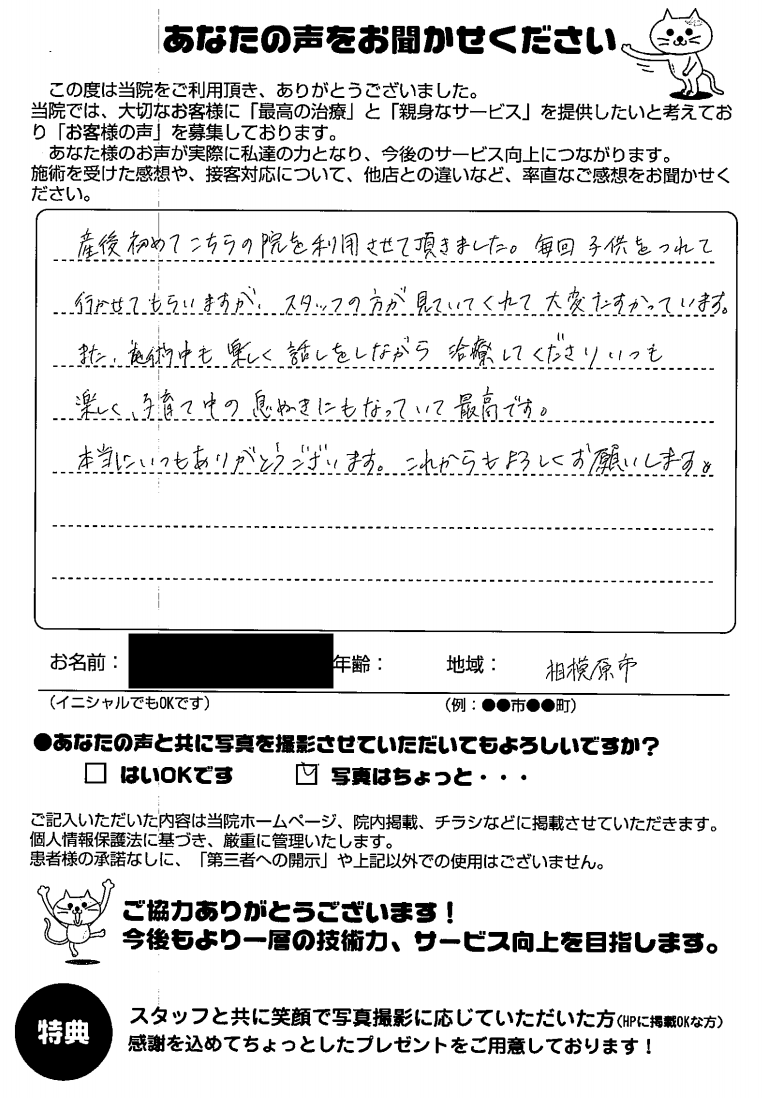 あなたの声をお聞かせください
この度は当院をご利用頂き、ありがとうございました。
当院では、大切なお客様に「最高の治療」と「親身なサービス」を提供したいと考えてお
り「お客様の声」を募集しております。
あなた様のお声が実際に私達の力となり、今後のサービス向上につながります。
施術を受けた感想や、接客対応について、他店との違いなど、率直なご感想をお聞かせく
ださい。
産後初めてこちらの院を利用させて頂きました。毎回子供をつれて
行かせてもらいますが、スタッフの方が見ていてくれて大変たすかっています。
また、施術中も楽しく話しをしながら治療してくださりいつも
楽しく、子育て中の息ぬきにもなっていて最高です。
本当にいつもありがとうございます。これからもよろしくお願いします。
お名前： 年齢： 地域： 相模原市
（イニシャルでもOKです） （例：●●市●●町）
●あなたの声と共に写真を撮影させていただいてもよろしいですか？
□ はいOKです ☑ 写真はちょっと・・・
ご記入いただいた内容は当院ホームページ、院内掲載、チラシなどに掲載させていただきます。
個人情報保護法に基づき、厳重に管理いたします。
患者様の承諾なしに、「第三者への開示」や上記以外での使用はございません。
ご協力ありがとうございます！
今後もより一層の技術力、サービス向上を目指します。
特典
スタッフと共に笑顔で写真撮影に応じていただいた方（HPに掲載OKな方）
感謝を込めてちょっとしたプレゼントをご用意しております！